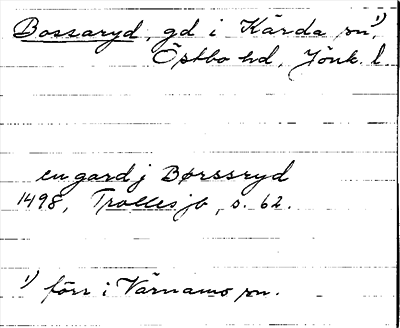 Bossaryd, gd i Kärda sn¹⁾,
Östbo hd, Jönk. l
en gard j Børssryd
1498, Trolles jb, s. 62.
¹⁾ förr i Värnamo sn.